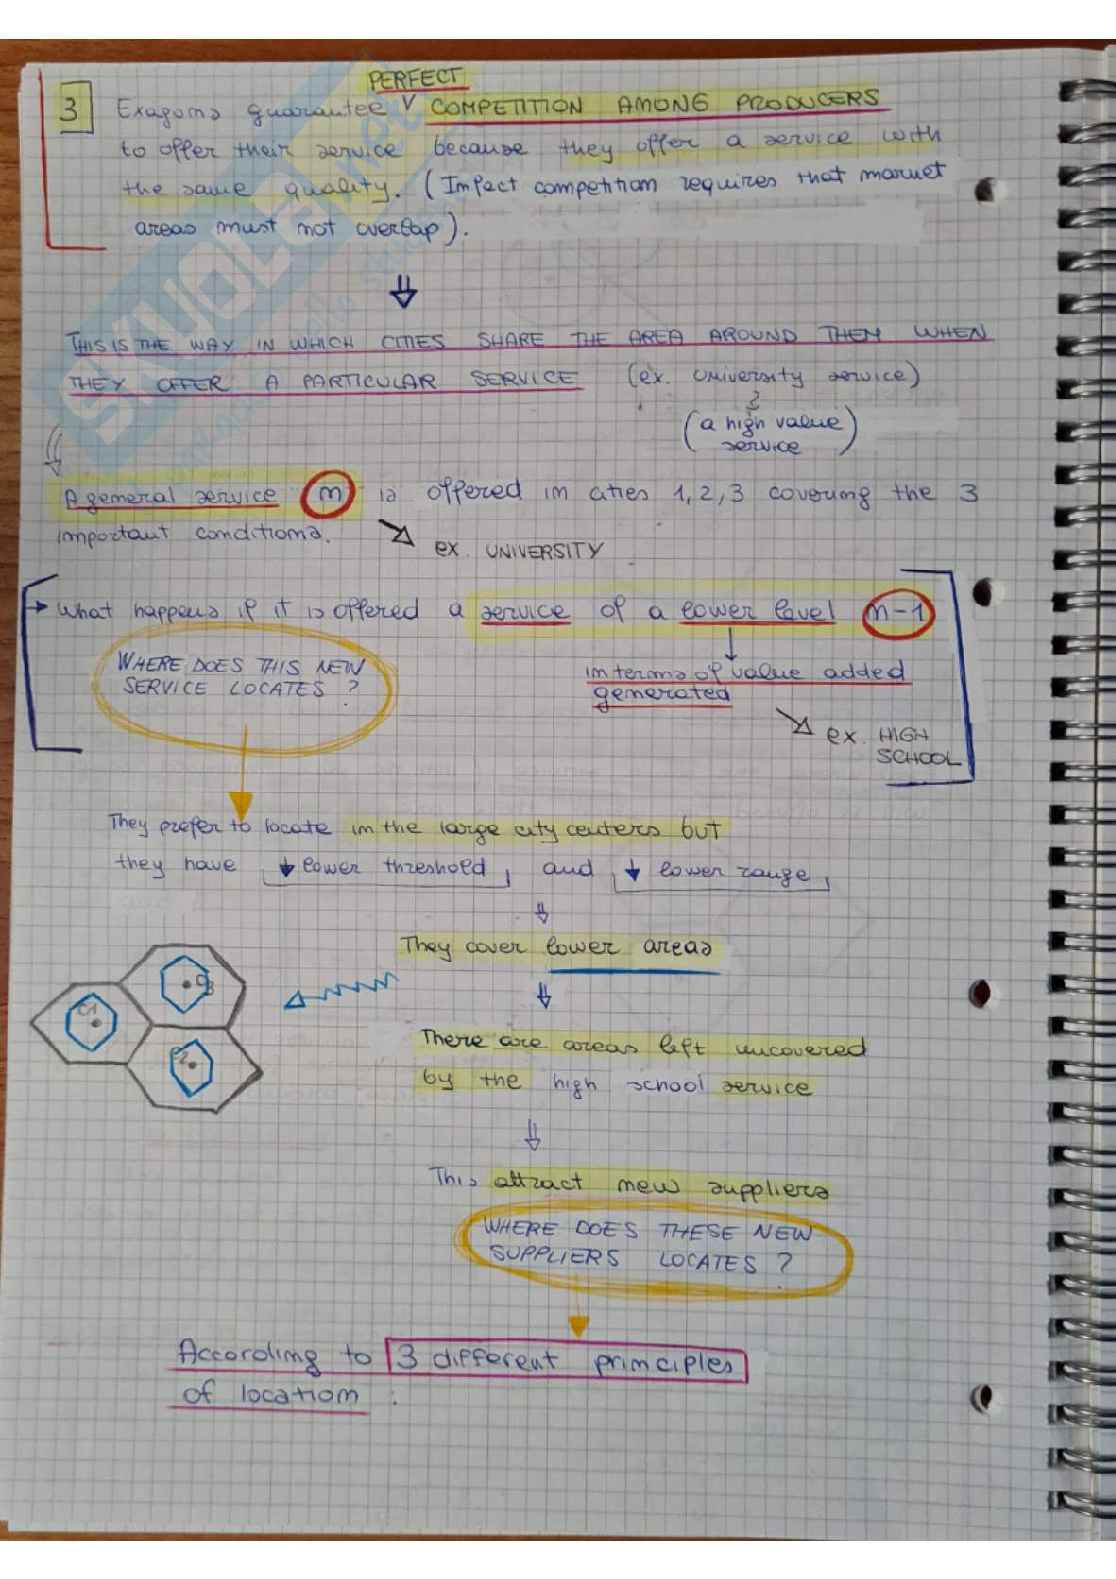 PERFECT
3 Exagons guarantee V COMPETITION AMONG PRODUCERS
to offer their service because they offer a service with
the same quality. (Infact competition requires that market
areas must not overlap).
THIS IS THE WAY IN WHICH CITIES SHARE THE AREA AROUND THEM WHEN
THEY OFFER A PARTICULAR SERVICE (ex. University service)
(a high value
service)
A general service n is offered in cities 1, 2, 3 covering the 3
important conditions.
ex. UNIVERSITY
What happens if it is offered a service of a lower level n-1
WHERE DOES THIS NEW
SERVICE LOCATES ?
in terms of value added
generated
ex. HIGH
SCHOOL
They prefer to locate in the large city centers but
they have ↓ lower threshold, and ↓ lower range,
They cover lower areas
C3
C1
C2
There are areas left uncovered
by the high school service
This attract new suppliers
WHERE DOES THESE NEW
SUPPLIERS LOCATES ?
According to 3 different principles
of location :